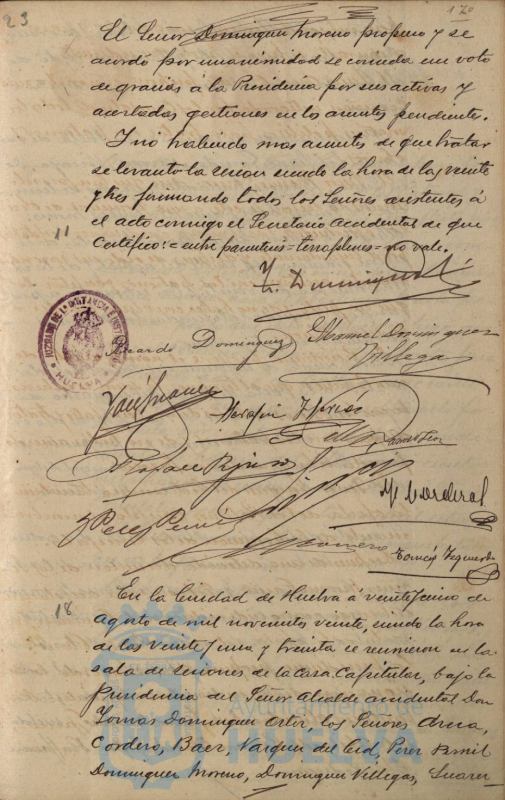 23
170
El Señor Dominguez Moreno propuso y se
acordó por unanimidad se conceda un voto
de gracias á la Presidencia por sus activas y
acertadas gestiones en los asuntos pendientes.
Y no habiendo mas asuntos de que tratar
se levantó la sesion siendo la hora de las veinte
y tres firmando todos los Señores asistentes á
11
el acto conmigo el Secretario Accidental de que
Certifico:=entre parentesis=terraplenes=no vale.
T. Dominguez
JUZGADO DE 1ª INSTANCIA E INSTRUCCION
HUELVA
Ricardo Dominguez
Manuel Dominguez
Villegas
José Suarez
Serafin
Rafael
M Cordero
J Perez
Romero
Tomás Izquierdo
En la Ciudad de Huelva á veinticinco de
18
Agosto de mil novecientos veinte, siendo la hora
de las veintiuna y treinta se reunieron en la
sala de sesiones de la Casa Capitular, bajo la
Presidencia del Señor Alcalde accidental Don
Tomas Dominguez Ortiz, los Señores
Cordero, Baez, Vazquez del Cid, Perez
Dominguez Moreno, Dominguez Villegas, Suarez
Ayuntamiento de
HUELVA